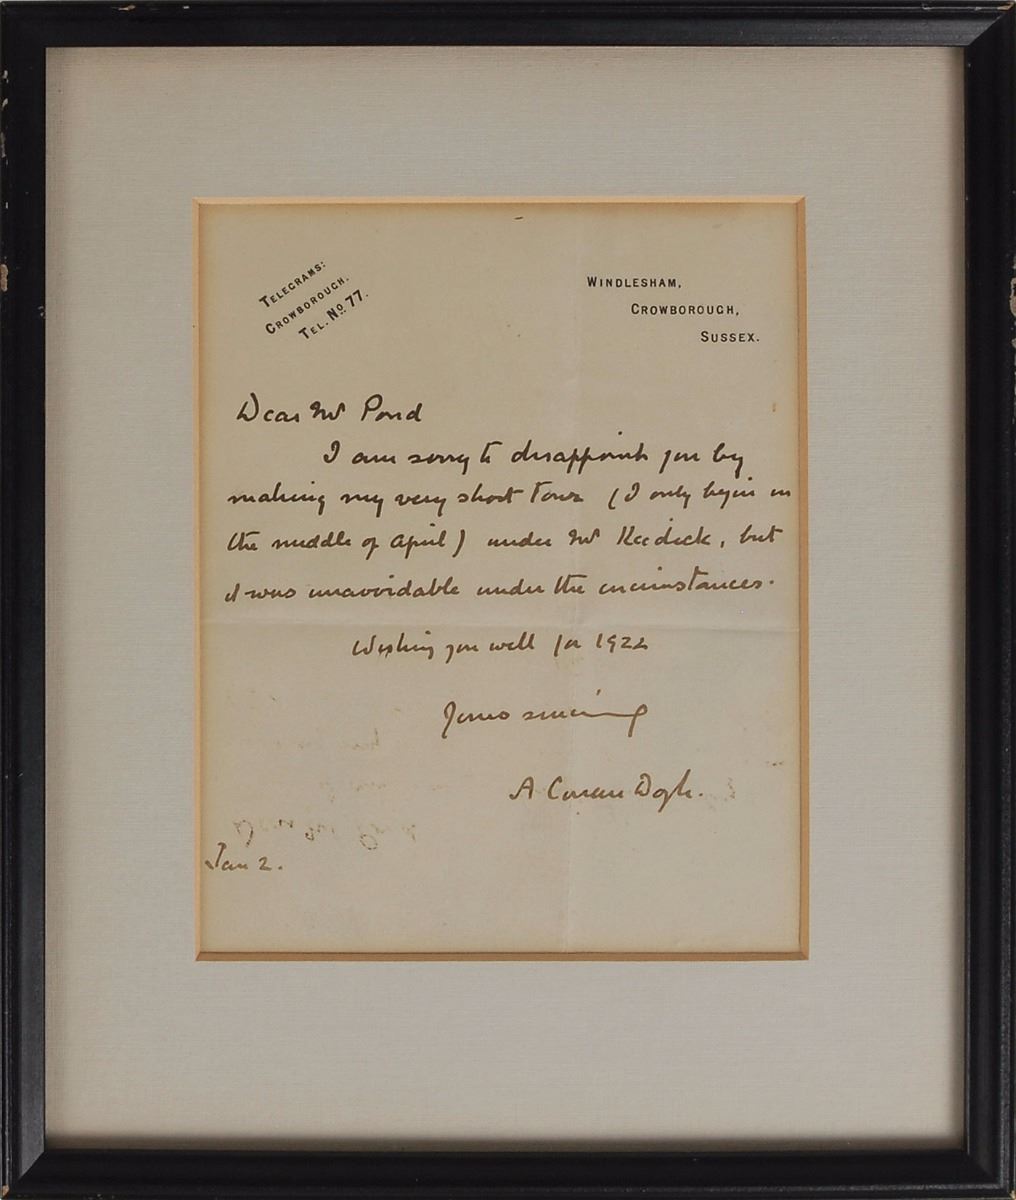 TELEGRAMS:
CROWBOROUGH.
TEL. No 77.
WINDLESHAM,
CROWBOROUGH,
SUSSEX.
Dear Mr Pond
I am sorry to disappoint you by
making my very short tour (I only begin in
the middle of April) under Mr Keedick, but
it was unavoidable under the circumstances.
Wishing you well for 1922
Yours sincerely
A Conan Doyle.
Jan 2.